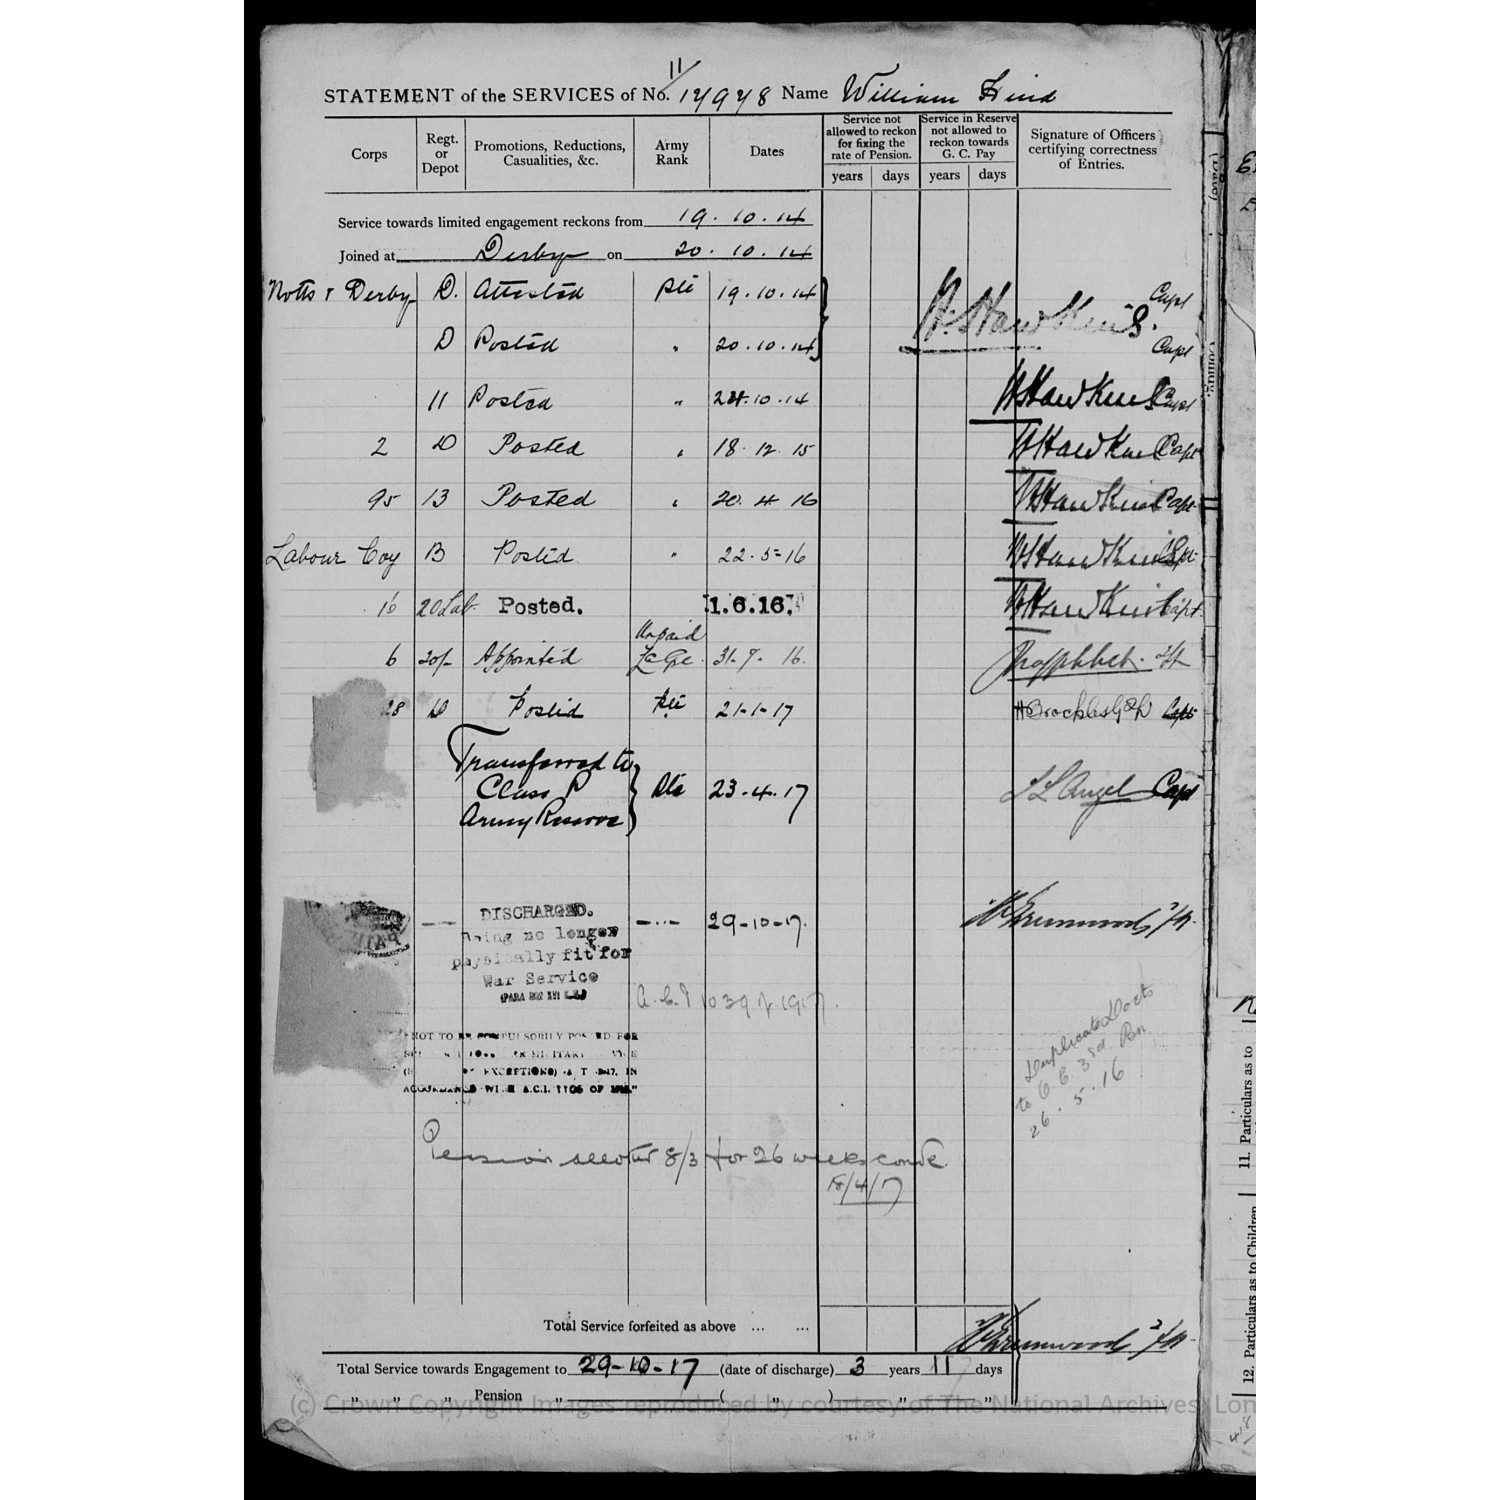 11/
STATEMENT of the SERVICES of No. 17978 Name William Hind
Corps
Regt. or Depot
Promotions, Reductions, Casualities, &c.
Army Rank
Dates
Service not allowed to reckon for fixing the rate of Pension.
years days
Service in Reserve not allowed to reckon towards G. C. Pay
years days
Signature of Officers certifying correctness of Entries.
Service towards limited engagement reckons from 19.10.14
Joined at Derby on 20.10.14
Notts & Derby D. Attested Pte 19.10.14 W. Hawkins. Capt
D Posted " 20.10.14 Capt
11 Posted " 24.10.14 W Hawkins Capt
2 D Posted " 18.12.15 W Hawkins Capt
95 13 Posted " 20.4.16 W Hawkins Capt
Labour Coy B Posted " 22.5.16 W Hawkins Capt
16 20 Lab Posted. 1.6.16. W Hawkins Capt
6 20/- Appointed Unpaid L/Cpl. 31.7.16.
28 D Posted Pte 21-1-17 Capt
Transferred to
Class P
Army Reserve
Pte 23.4.17 Angel Capt
DISCHARGED.
Being no longer
physically fit for
War Service
29-10-17.
A.C.I 1039 of 1917.
"NOT TO BE COMPULSORILY POSTED FOR
EXCEPTIONS)
ACCORDANCE WITH A.C.I. 1105 OF
Duplicate Docts
to O.C 3rd Bn
26.5.16
Pension 8/3 for 26 weeks
18/4/17
Total Service forfeited as above ... ...
Total Service towards Engagement to 29-10-17 (date of discharge) 3 years 11 days
" " " Pension " ( " ) " "
11. Particulars as to
12. Particulars as to Children
(c) Crown Copyright Images reproduced by courtesy of The National Archives, Lon